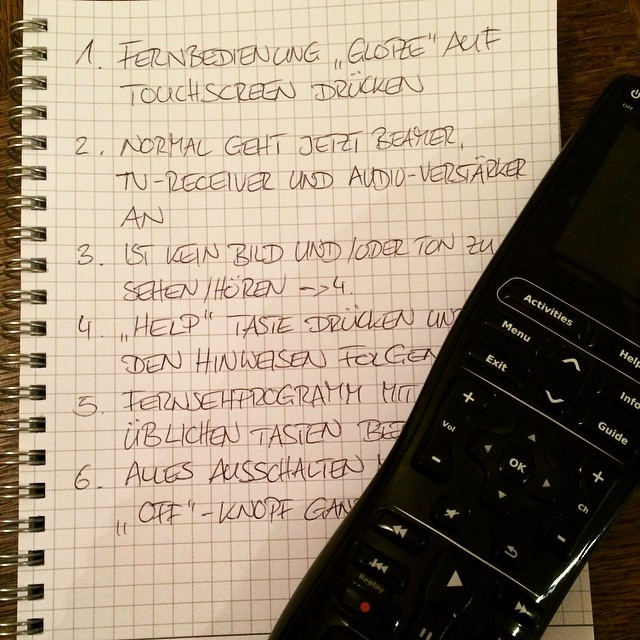 1. FERNBEDIENUNG „GLOTZE" AUF
TOUCHSCREEN DRÜCKEN
2. NORMAL GEHT JETZT BEAMER,
TV-RECEIVER UND AUDIO-VERSTÄRKER
AN
3. IST KEIN BILD UND/ODER TON ZU
SEHEN/HÖREN -->4.
4. „HELP" TASTE DRÜCKEN UND
DEN HINWEISEN FOLGEN
5. FERNSEHPROGRAMM MIT
ÜBLICHEN TASTEN
6. ALLES AUSSCHALTEN
„OFF"-KNOPF GANZ
Activities
Help
Menu
Info
Exit
Guide
+
Vol
-
OK
+
Ch
-
Replay